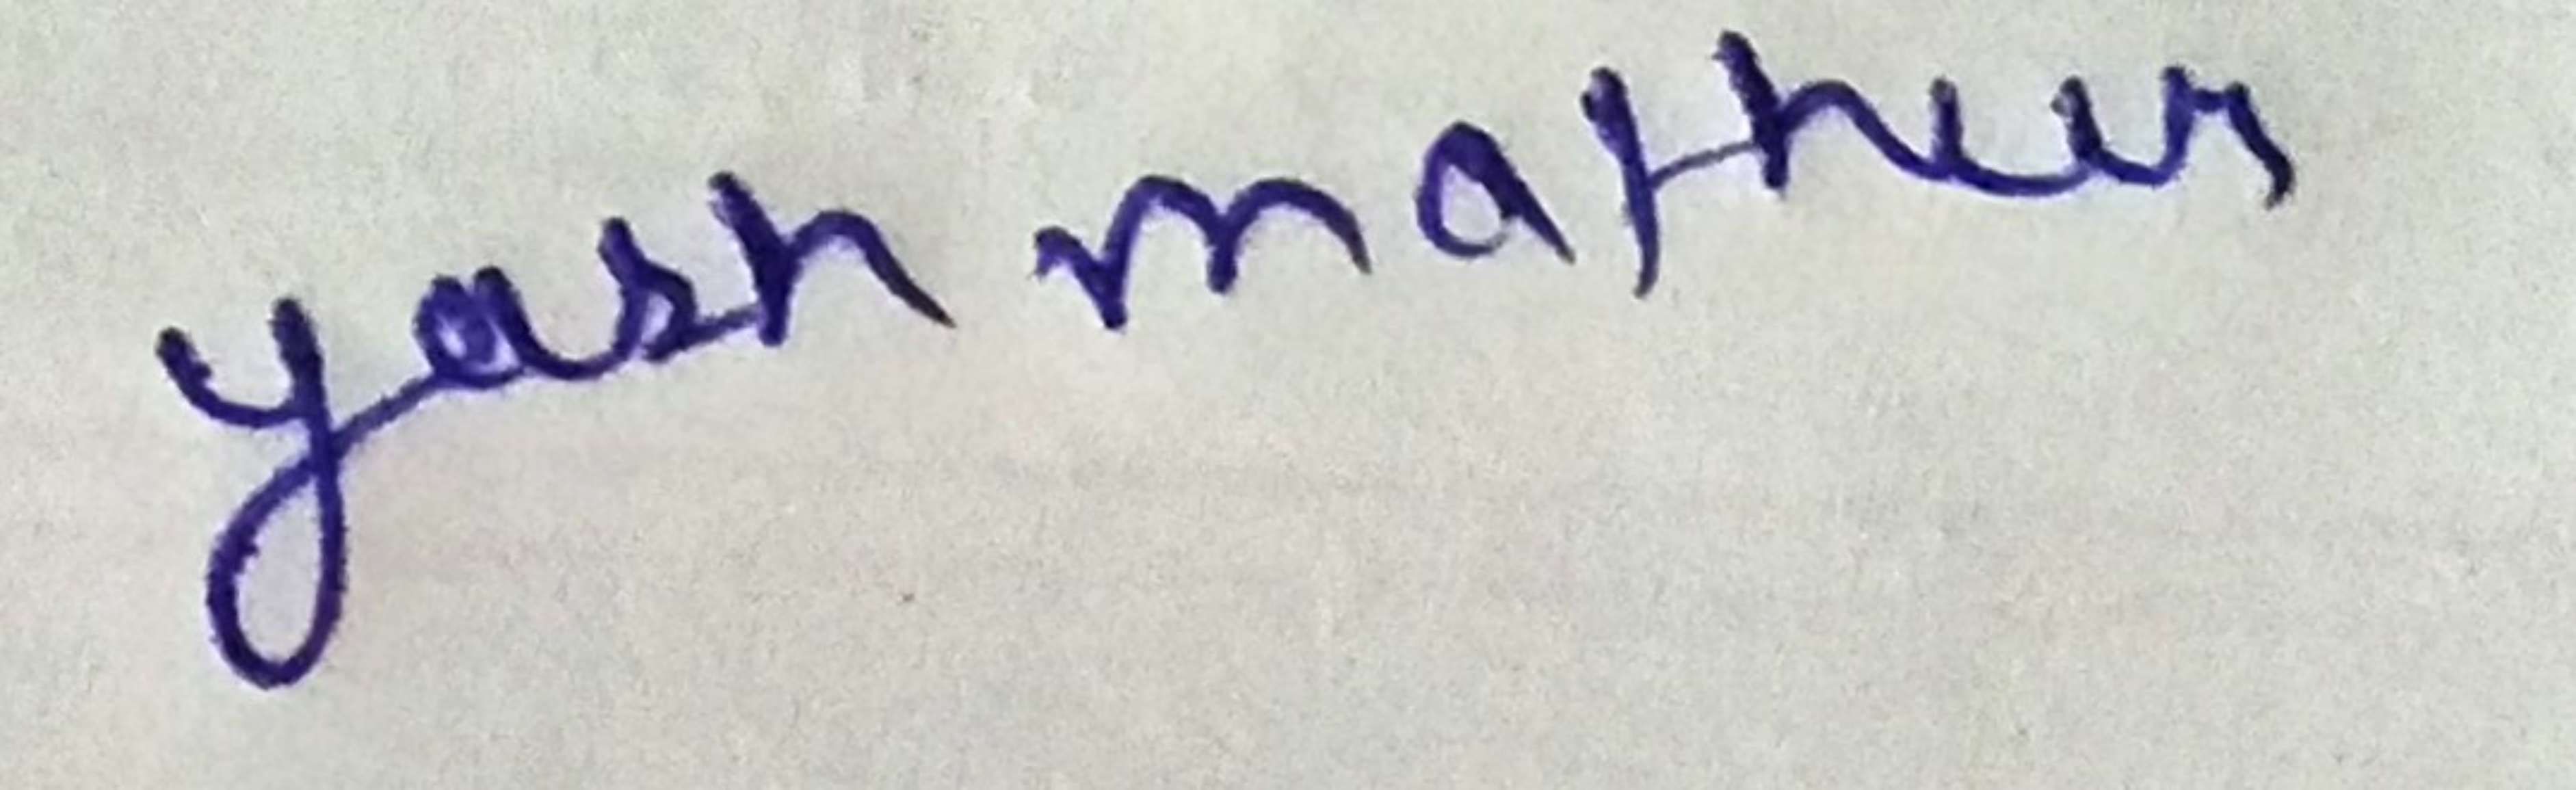 yash mathur